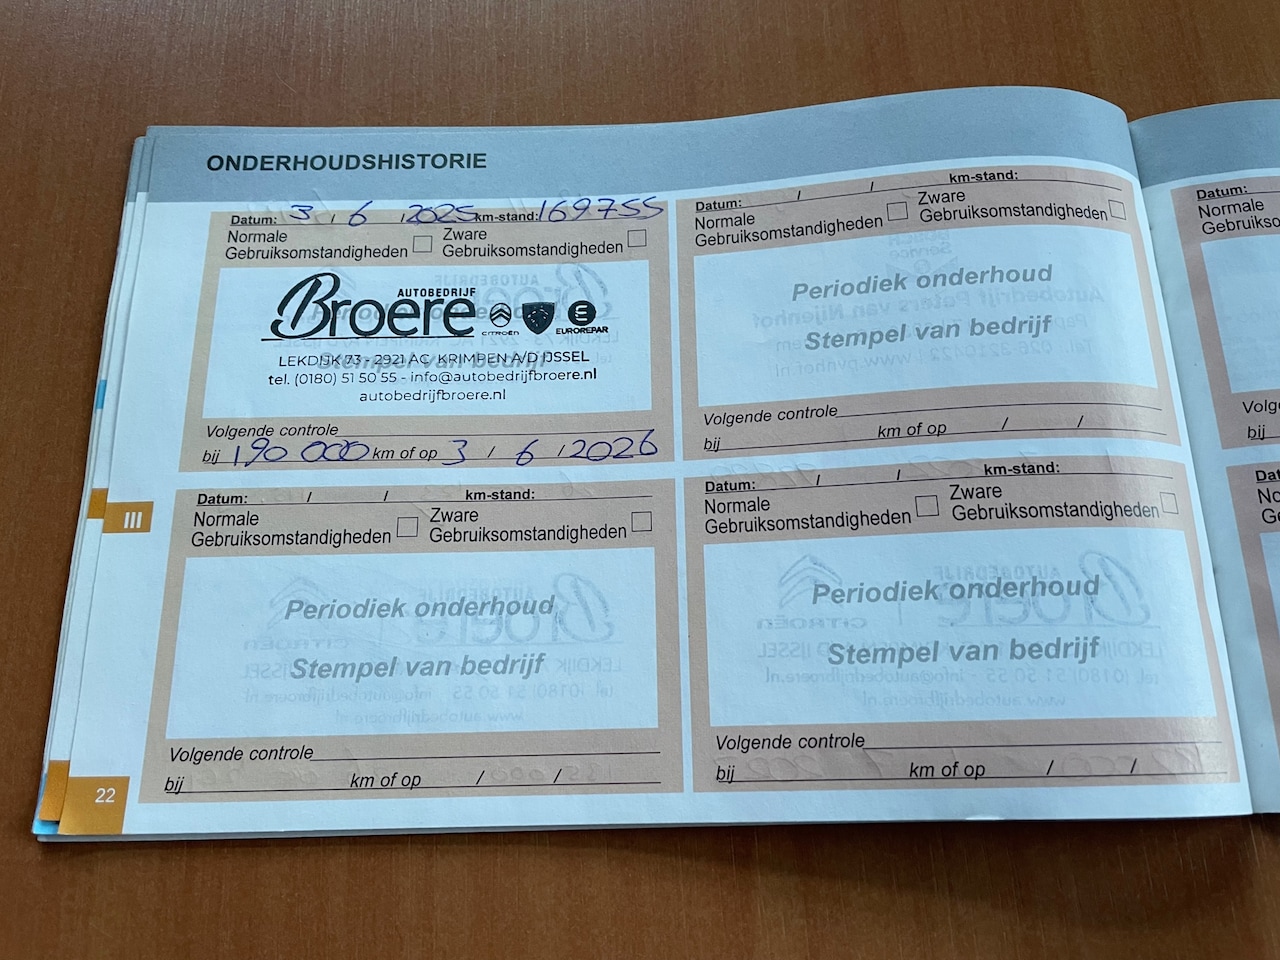 ONDERHOUDSHISTORIE
Datum: 3 / 6 / 2025 km-stand: 169755
Normale
Gebruiksomstandigheden
Zware
Gebruiksomstandigheden
AUTOBEDRIJF
Broere
CITROËN
EUROREPAR
LEKDIJK 73 - 2921 AC KRIMPEN A/D IJSSEL
tel. (0180) 51 50 55 - info@autobedrijfbroere.nl
autobedrijfbroere.nl
Volgende controle
bij 190 000 km of op 3 / 6 / 2026
Datum: / / km-stand:
Normale
Gebruiksomstandigheden
Zware
Gebruiksomstandigheden
Periodiek onderhoud
Stempel van bedrijf
Volgende controle
bij km of op / /
Datum: / / km-stand:
Normale
Gebruiksomstandigheden
Zware
Gebruiksomstandigheden
Periodiek onderhoud
Stempel van bedrijf
Volgende controle
bij km of op / /
Datum: / / km-stand:
Normale
Gebruiksomstandigheden
Zware
Gebruiksomstandigheden
Periodiek onderhoud
Stempel van bedrijf
Volgende controle
bij km of op / /
III
22
Datum:
Normale
Gebruiksom
Volg
bij
Dat
No
Ge